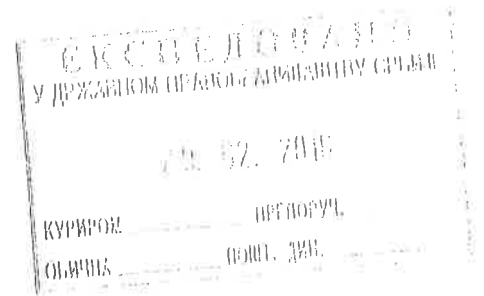 ЕКСПЕДОВАНО
У ДРЖАВНОМ ПРАВОБРАНИЛАШТВУ
02. 20
КУРИРОМ ПРЕПОРУЧ.
ОБИЧНА ПОШТ. ДИН.